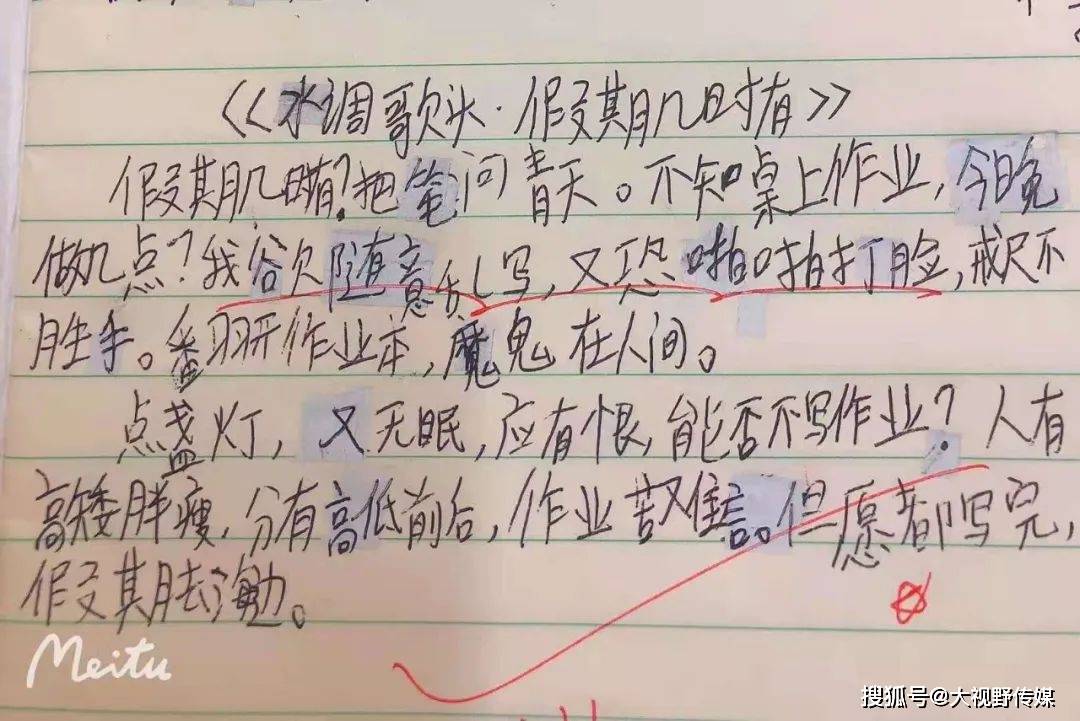 《水调歌头·假期几时有》
假期几时有?把笔问青天。不知桌上作业,今日兔
做几点?我欲随意乱写,又恐啪啪打脸,戒尺不
胜手。翻开作业本,魔鬼在人间。
点盏灯,又无眠,应有恨,能否不写作业?人有
高矮胖瘦,分有高低前后,作业苦难言。但愿都写完,
假期去海边。
Meitu
搜狐号@大视野传媒